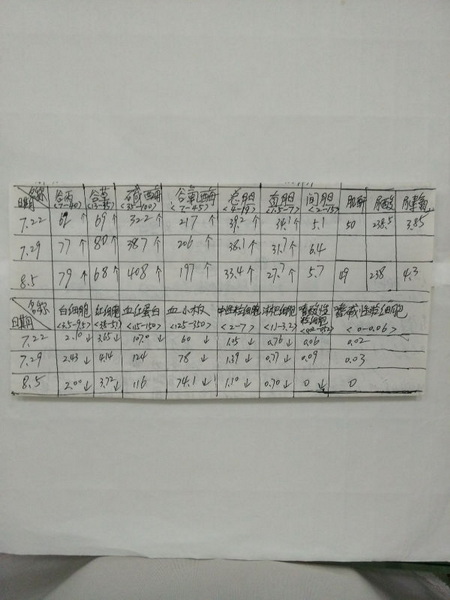 名称 谷丙 谷草 磷酶 谷氨酶 总胆 直胆 间胆 肌酐 尿酸 尿素氮
日期 <7-40> <7-45> <4-19> <2-15>
7.22 62↑ 69↑ 322↑ 217↑ 39.2↑ 34.1↑ 5.1 50 238.5 3.85
7.29 77↑ 80↑ 387↑ 206↑ 38.1↑ 31.7↑ 6.4
8.5 79↑ 68↑ 408↑ 197↑ 33.4↑ 27.7↑ 5.7 69 238 4.3
名称 白细胞 红细胞 血红蛋白 血小板 中性粒细胞 淋巴细胞 嗜酸性粒细胞 嗜碱性粒细胞
日期 <3.5-9.5> <3.8-5.1> <115-150> <125-350> <2-7> <1.1-3.2> <0-0.06>
7.22 2.10↓ 3.65↓ 107.0↓ 60↓ 1.05↓ 0.76↓ 0.06 0.02
7.29 2.43↓ 4.14 124 78↓ 1.39↓ 0.77↓ 0.09 0.03
8.5 2.00↓ 3.72↓ 116 74.1↓ 1.10↓ 0.70↓ 0↓ 0